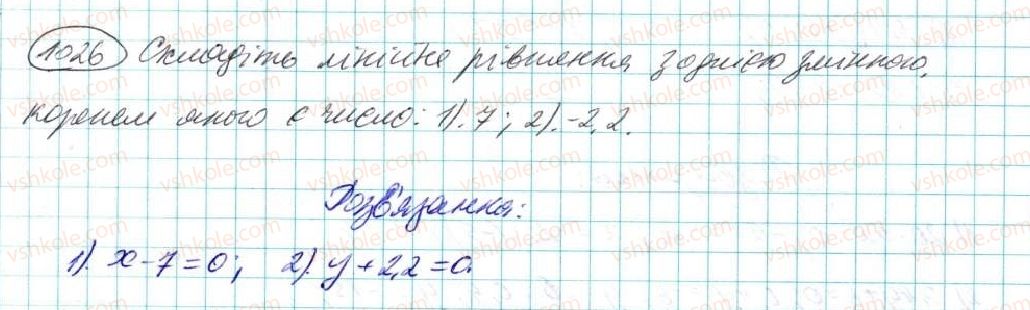 1026 Складіть лінійне рівняння з однією змінною,
коренем якого є число: 1). 7; 2). -2,2.
Розв'язання:
1). x - 7 = 0; 2). y + 2,2 = 0.